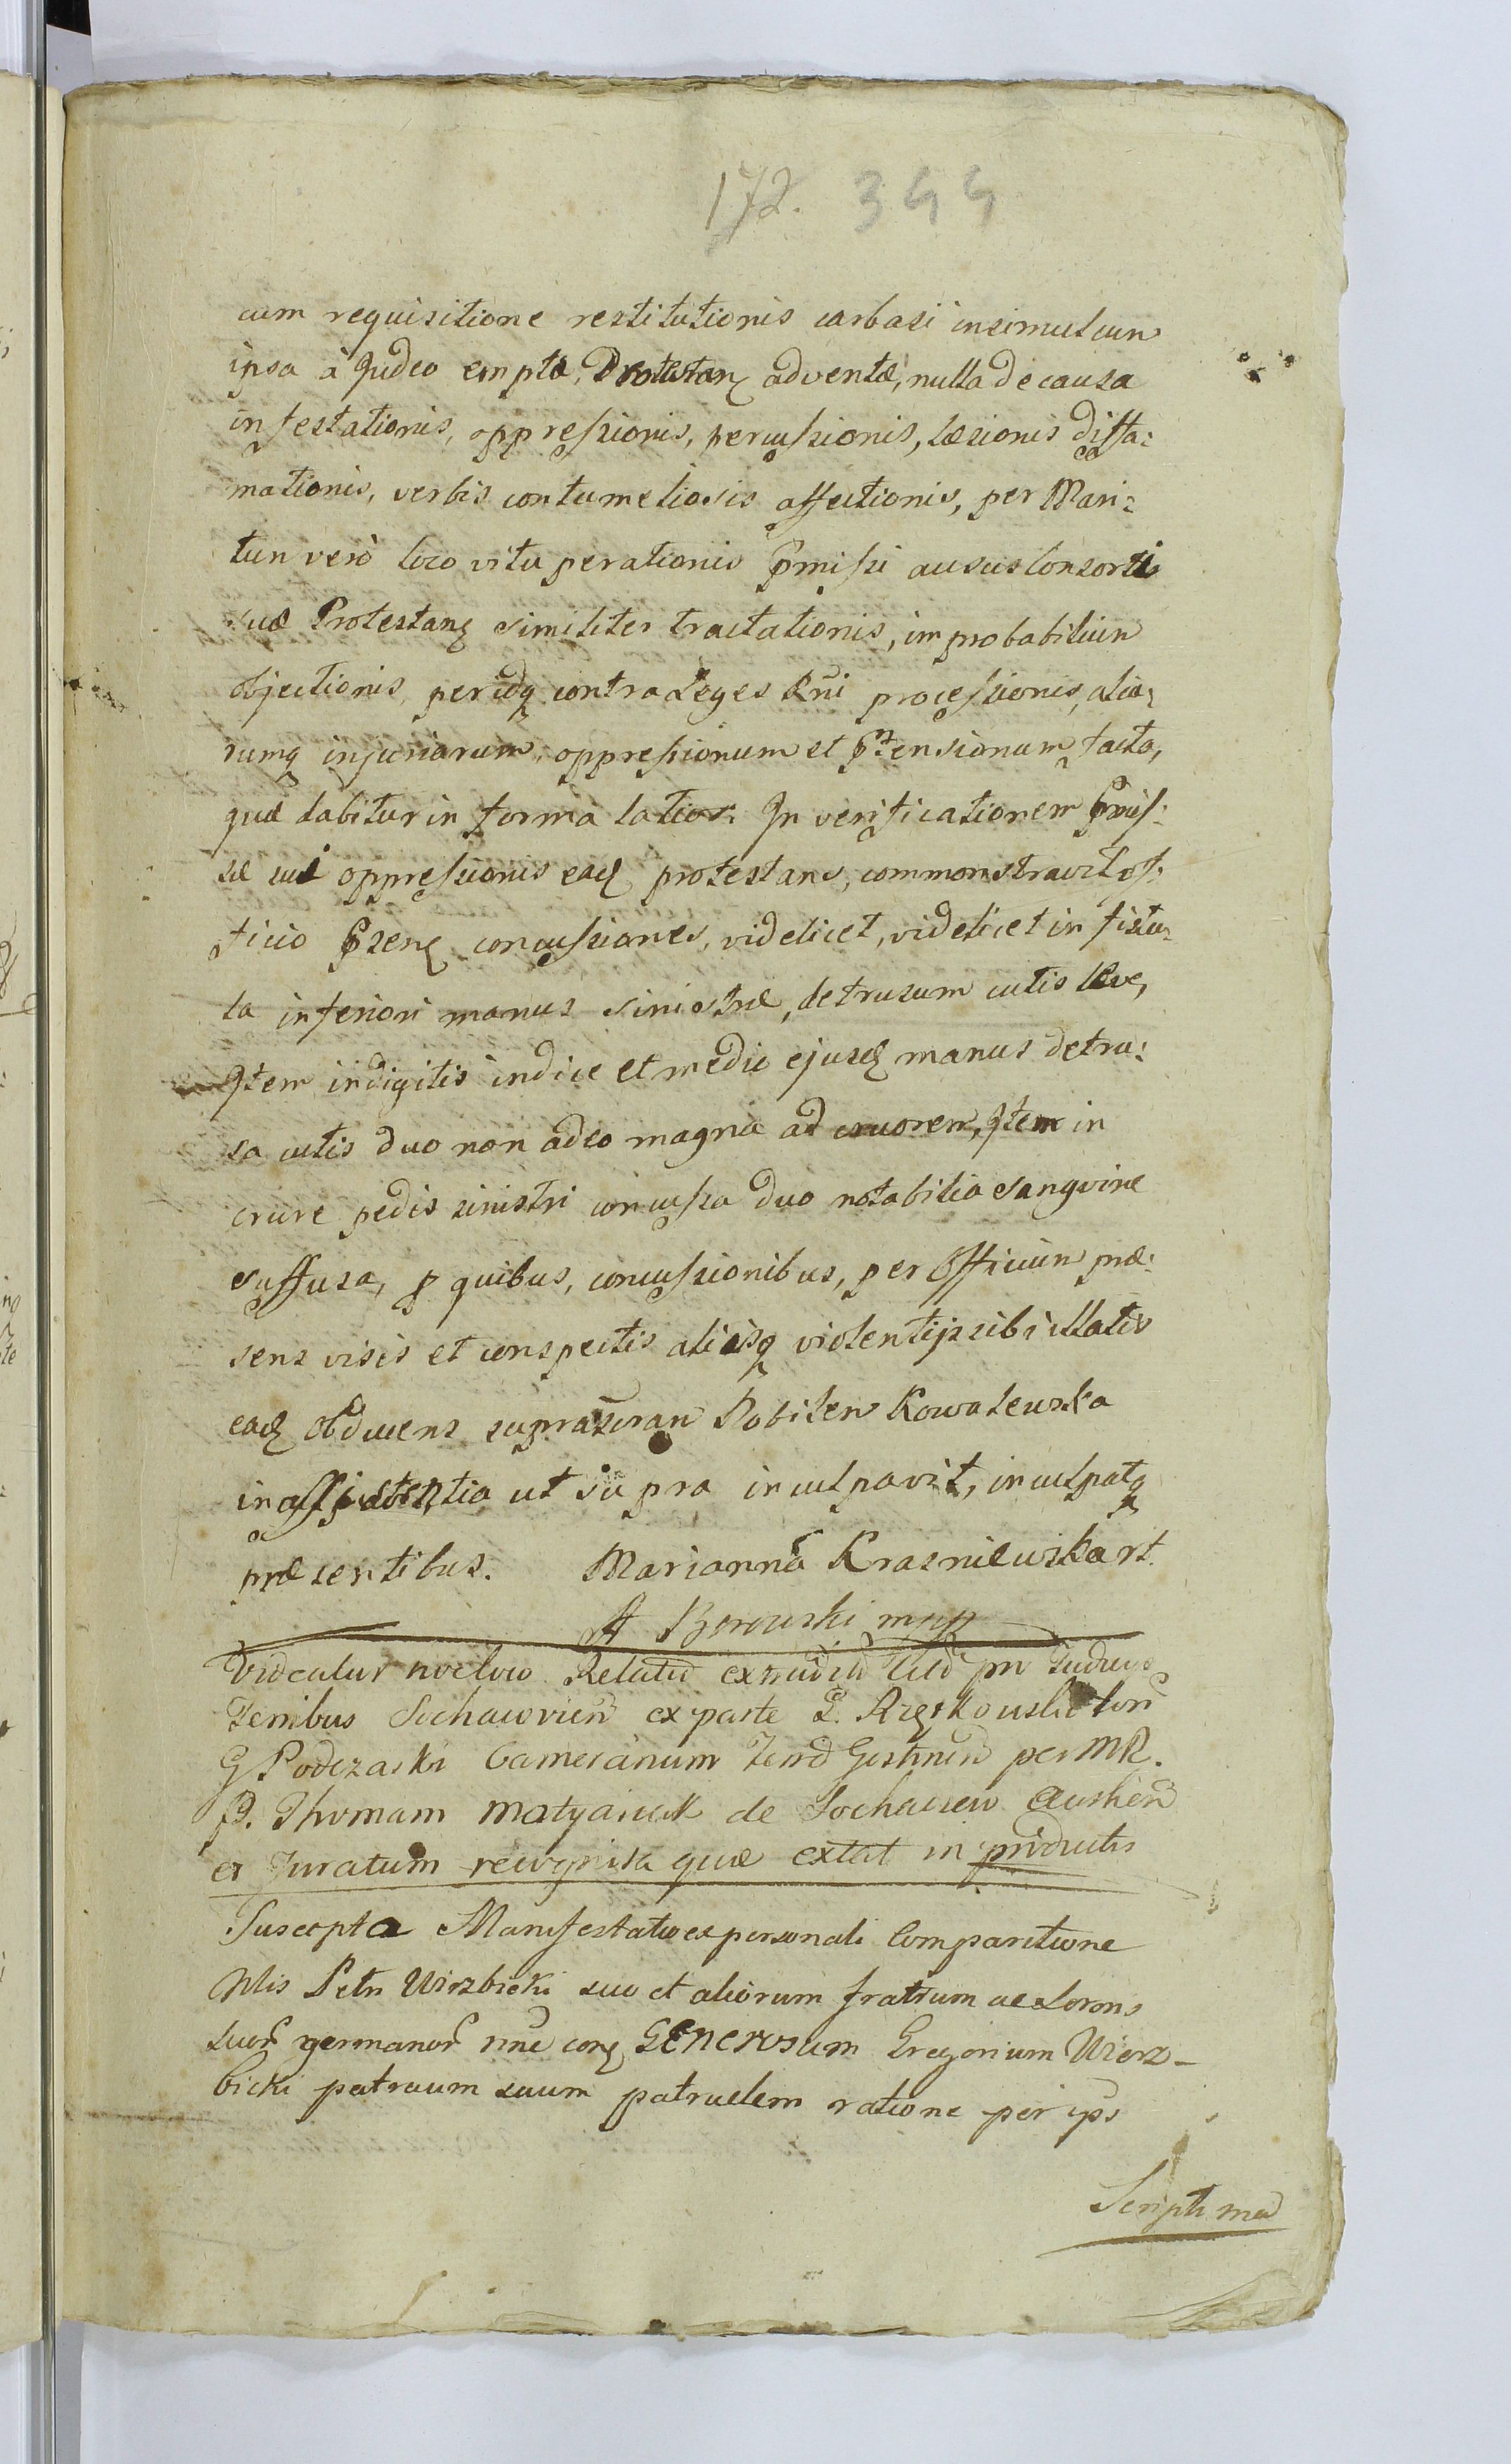 172. 344
cum requisitione restitutionis carbasi insimul cum
ipsa à Judeo emptæ, Protestanꝫ adventæ, nulla de causa
infestationis, oppreſsionis, percuſsionis, læsionis diffa:
mationis, verbis contumeliosis affectionis, per Mari:
tum verò loco vituperationis p̄miſsi ausus Consorti
suæ Protestanꝫ similiter tractationis, improbabilium
objectionis, per idq contra Leges Rn̄i proceſsionis, alia,
rumq injuriarum, oppreſsionum et p̄tensionum facta,
quæ dabitur in forma latior: In verificationem p̄miſ:
sæ sui oppreſsionis eadꝫ protestans, commonstravit of:
ficio p̄senꝫ concuſsiones, videlicet, videlicet in fistu,
la inferiori manus sinistræ, detrusum cutis leve,
Item in digitis indice et medio ejusdꝫ manus detru:
sa cutis duo non adeo magna ad cruorem, Item in
crure pedis sinistri concuſsa duo notabilia sangvine
suffusa, p quibus, concuſsionibus, per Officium præ:
sens visis et conspectis aliisq violentijs sibi illatis
eadꝫ obducens suprascran Nobilem Kowalewska
in aſsistentia ut supra inculpavit, inculpatq
præsentibus. Marianna Krasniewska rt.
A Borowski mpp
Videatur noclue Relatio ex Judicii pn Judicio
Terribus Sochacovien ex parte
G Podczaski Camerarium Terræ Gostinen per MR.
P. Thomam Matyasiak de Sochaczew
et Juratum recognita quæ extat in productis
Suscepta Manifestatio ex personali Comparitione
Nlis Petri Wirzbicki suo et aliorum fratrum ac Sororis
suor germanor nne conꝫ Generosum Gregorium Wierz-
bicki patruum suum patruelem ratione per ips
Scripti med